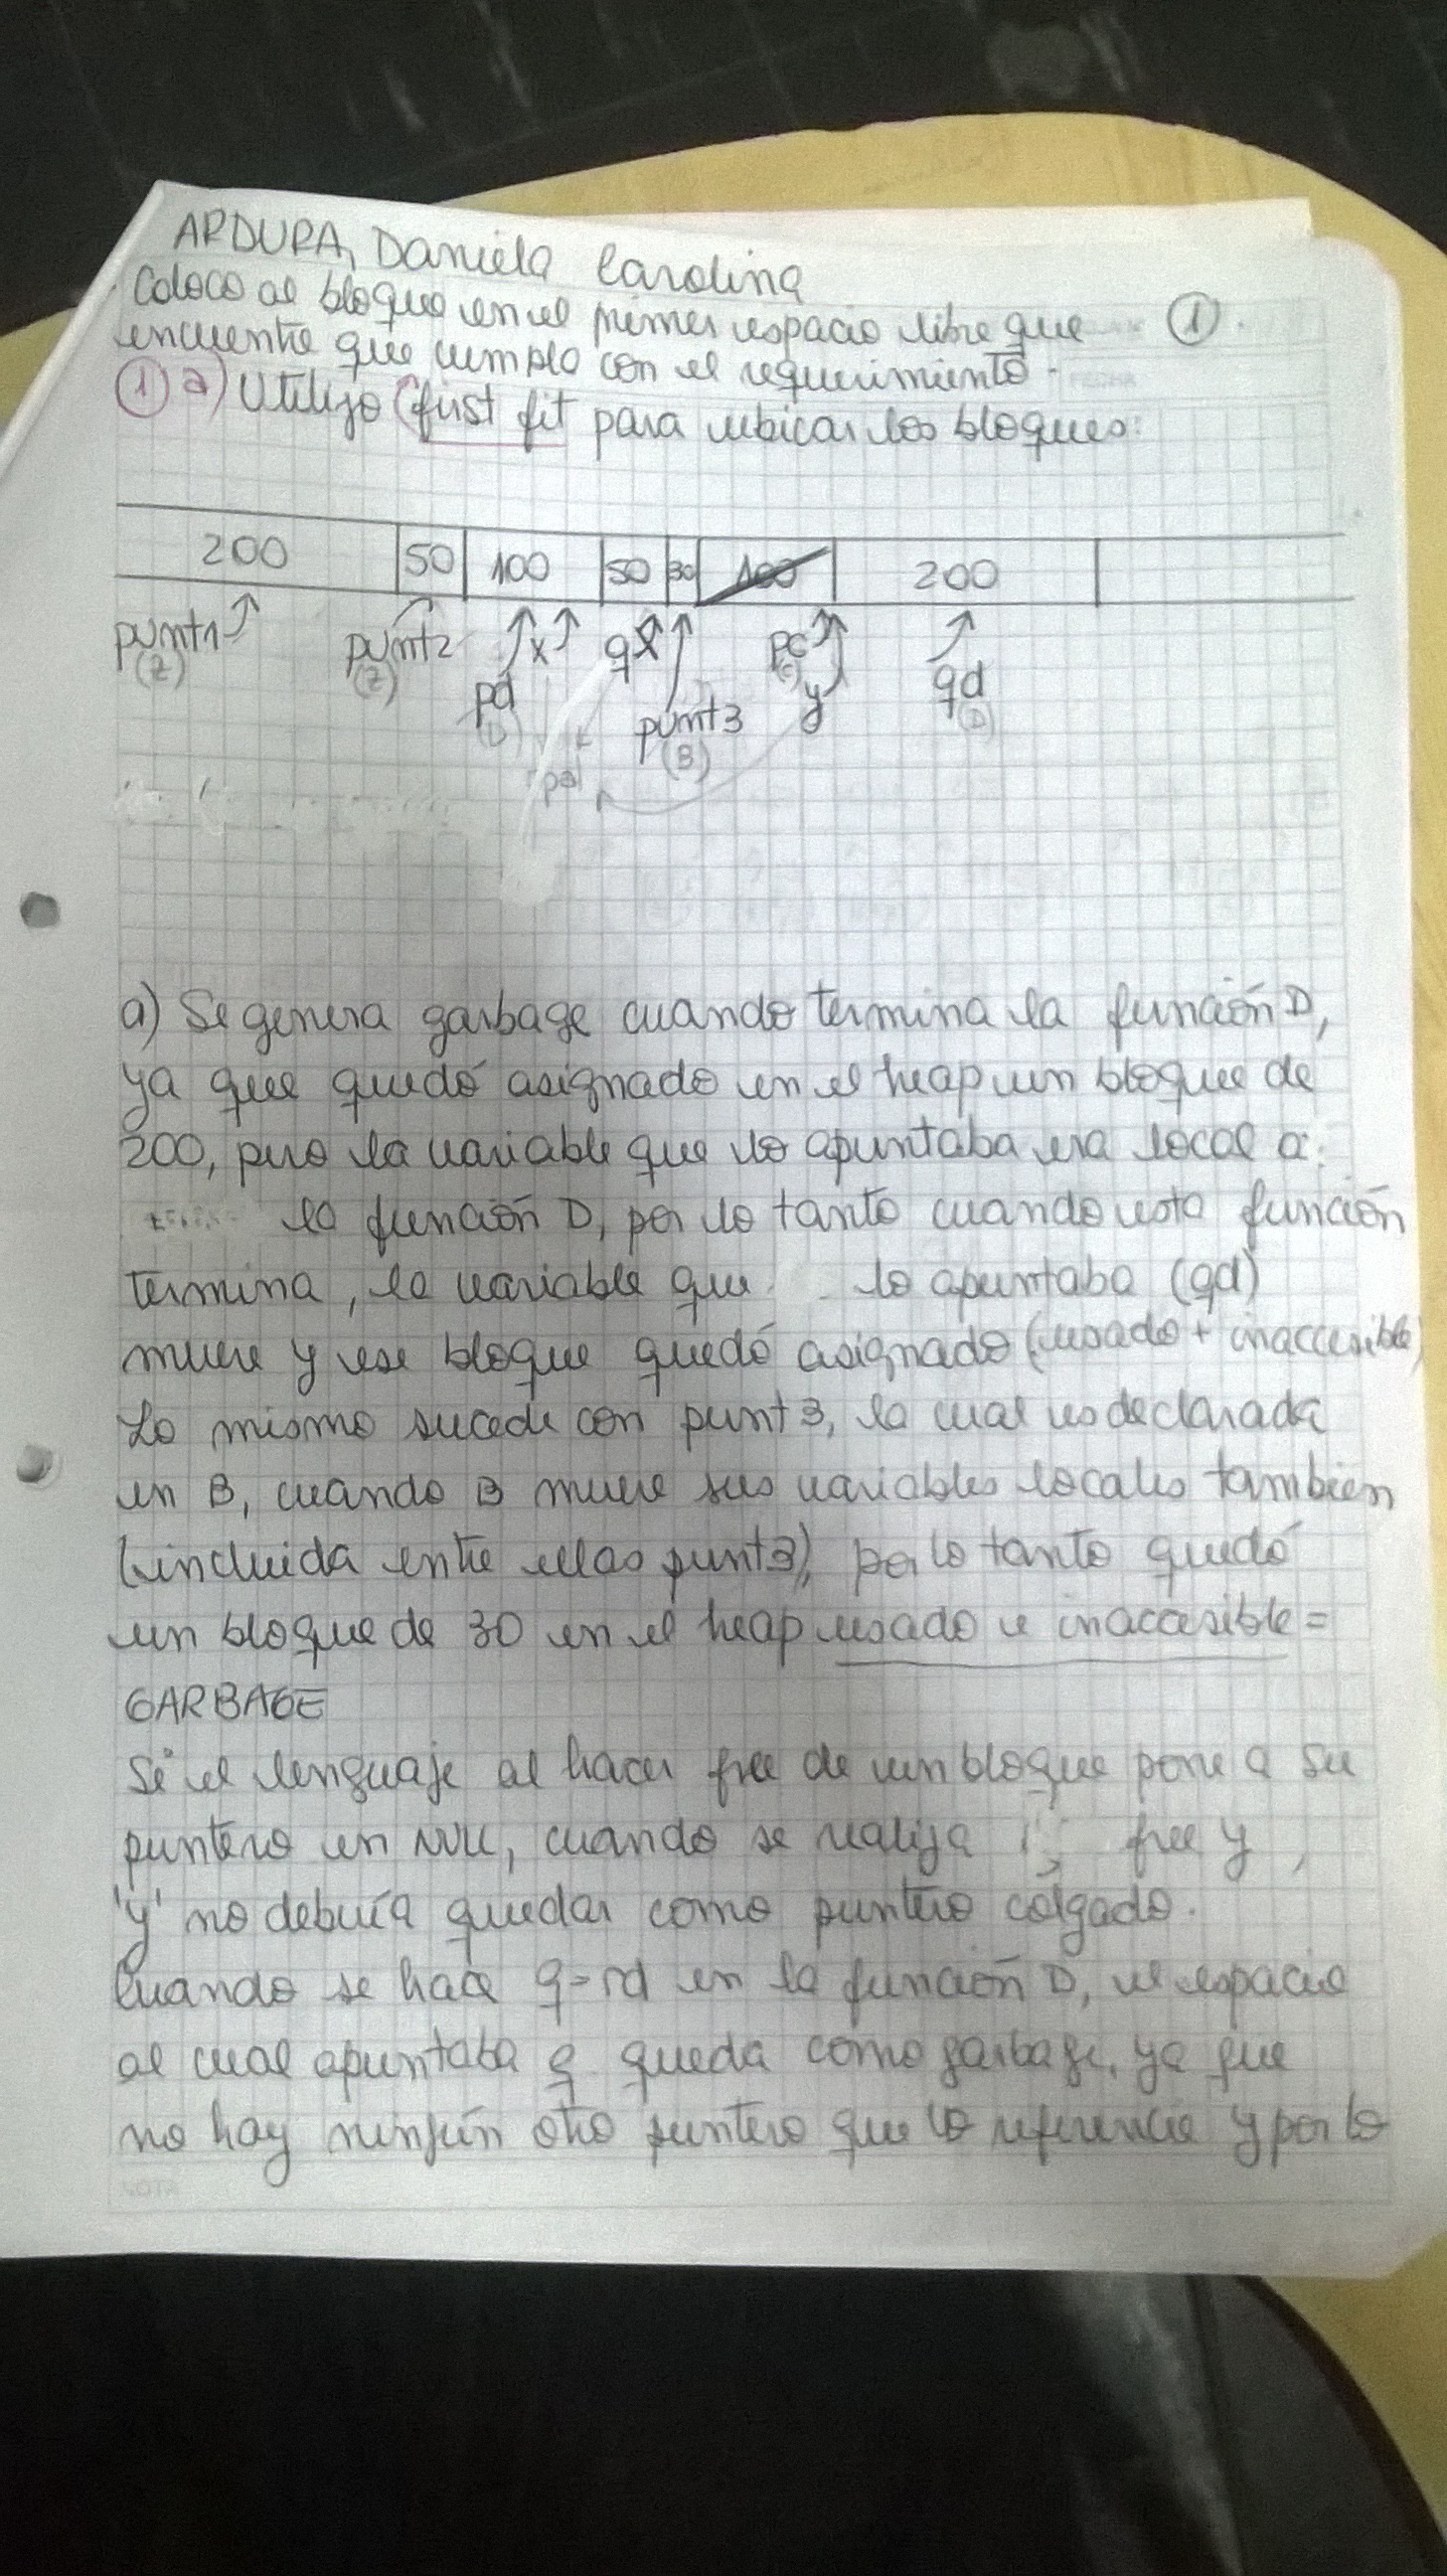 ARDURA, Daniela Carolina
Coloco al bloque en el primer espacio libre que
encuentre que cumpla con el requerimiento.
1
1 a) Utilizo first fit para ubicar los bloques:
FECHA
200 50 100 50 30 100 200
punt1 punt2 x q x pc
(Z) (Z) pd punt3 y qd
(B) (D)
pd
a) Se genera garbage cuando termina la función D,
ya que quedó asignado en el heap un bloque de
200, pero la variable que lo apuntaba era local a:
la función D, por lo tanto cuando esta función
termina, la variable que lo apuntaba (qd)
muere y ese bloque quedó asignado (usado + inaccesible)
Lo mismo sucede con punt3, la cual es declarada
en B, cuando B muere sus variables locales tambien
(incluida entre ellas punt3), por lo tanto quedó
un bloque de 30 en el heap usado e inaccesible =
GARBAGE
Si el lenguaje al hacer free de un bloque pone a su
puntero en NULL, cuando se realiza free y,
'y' no debería quedar como puntero colgado.
Cuando se hace q=rd en la función D, el espacio
al cual apuntaba q queda como garbage, ya que
no hay ningún otro puntero que lo referencie y por lo
NOTA